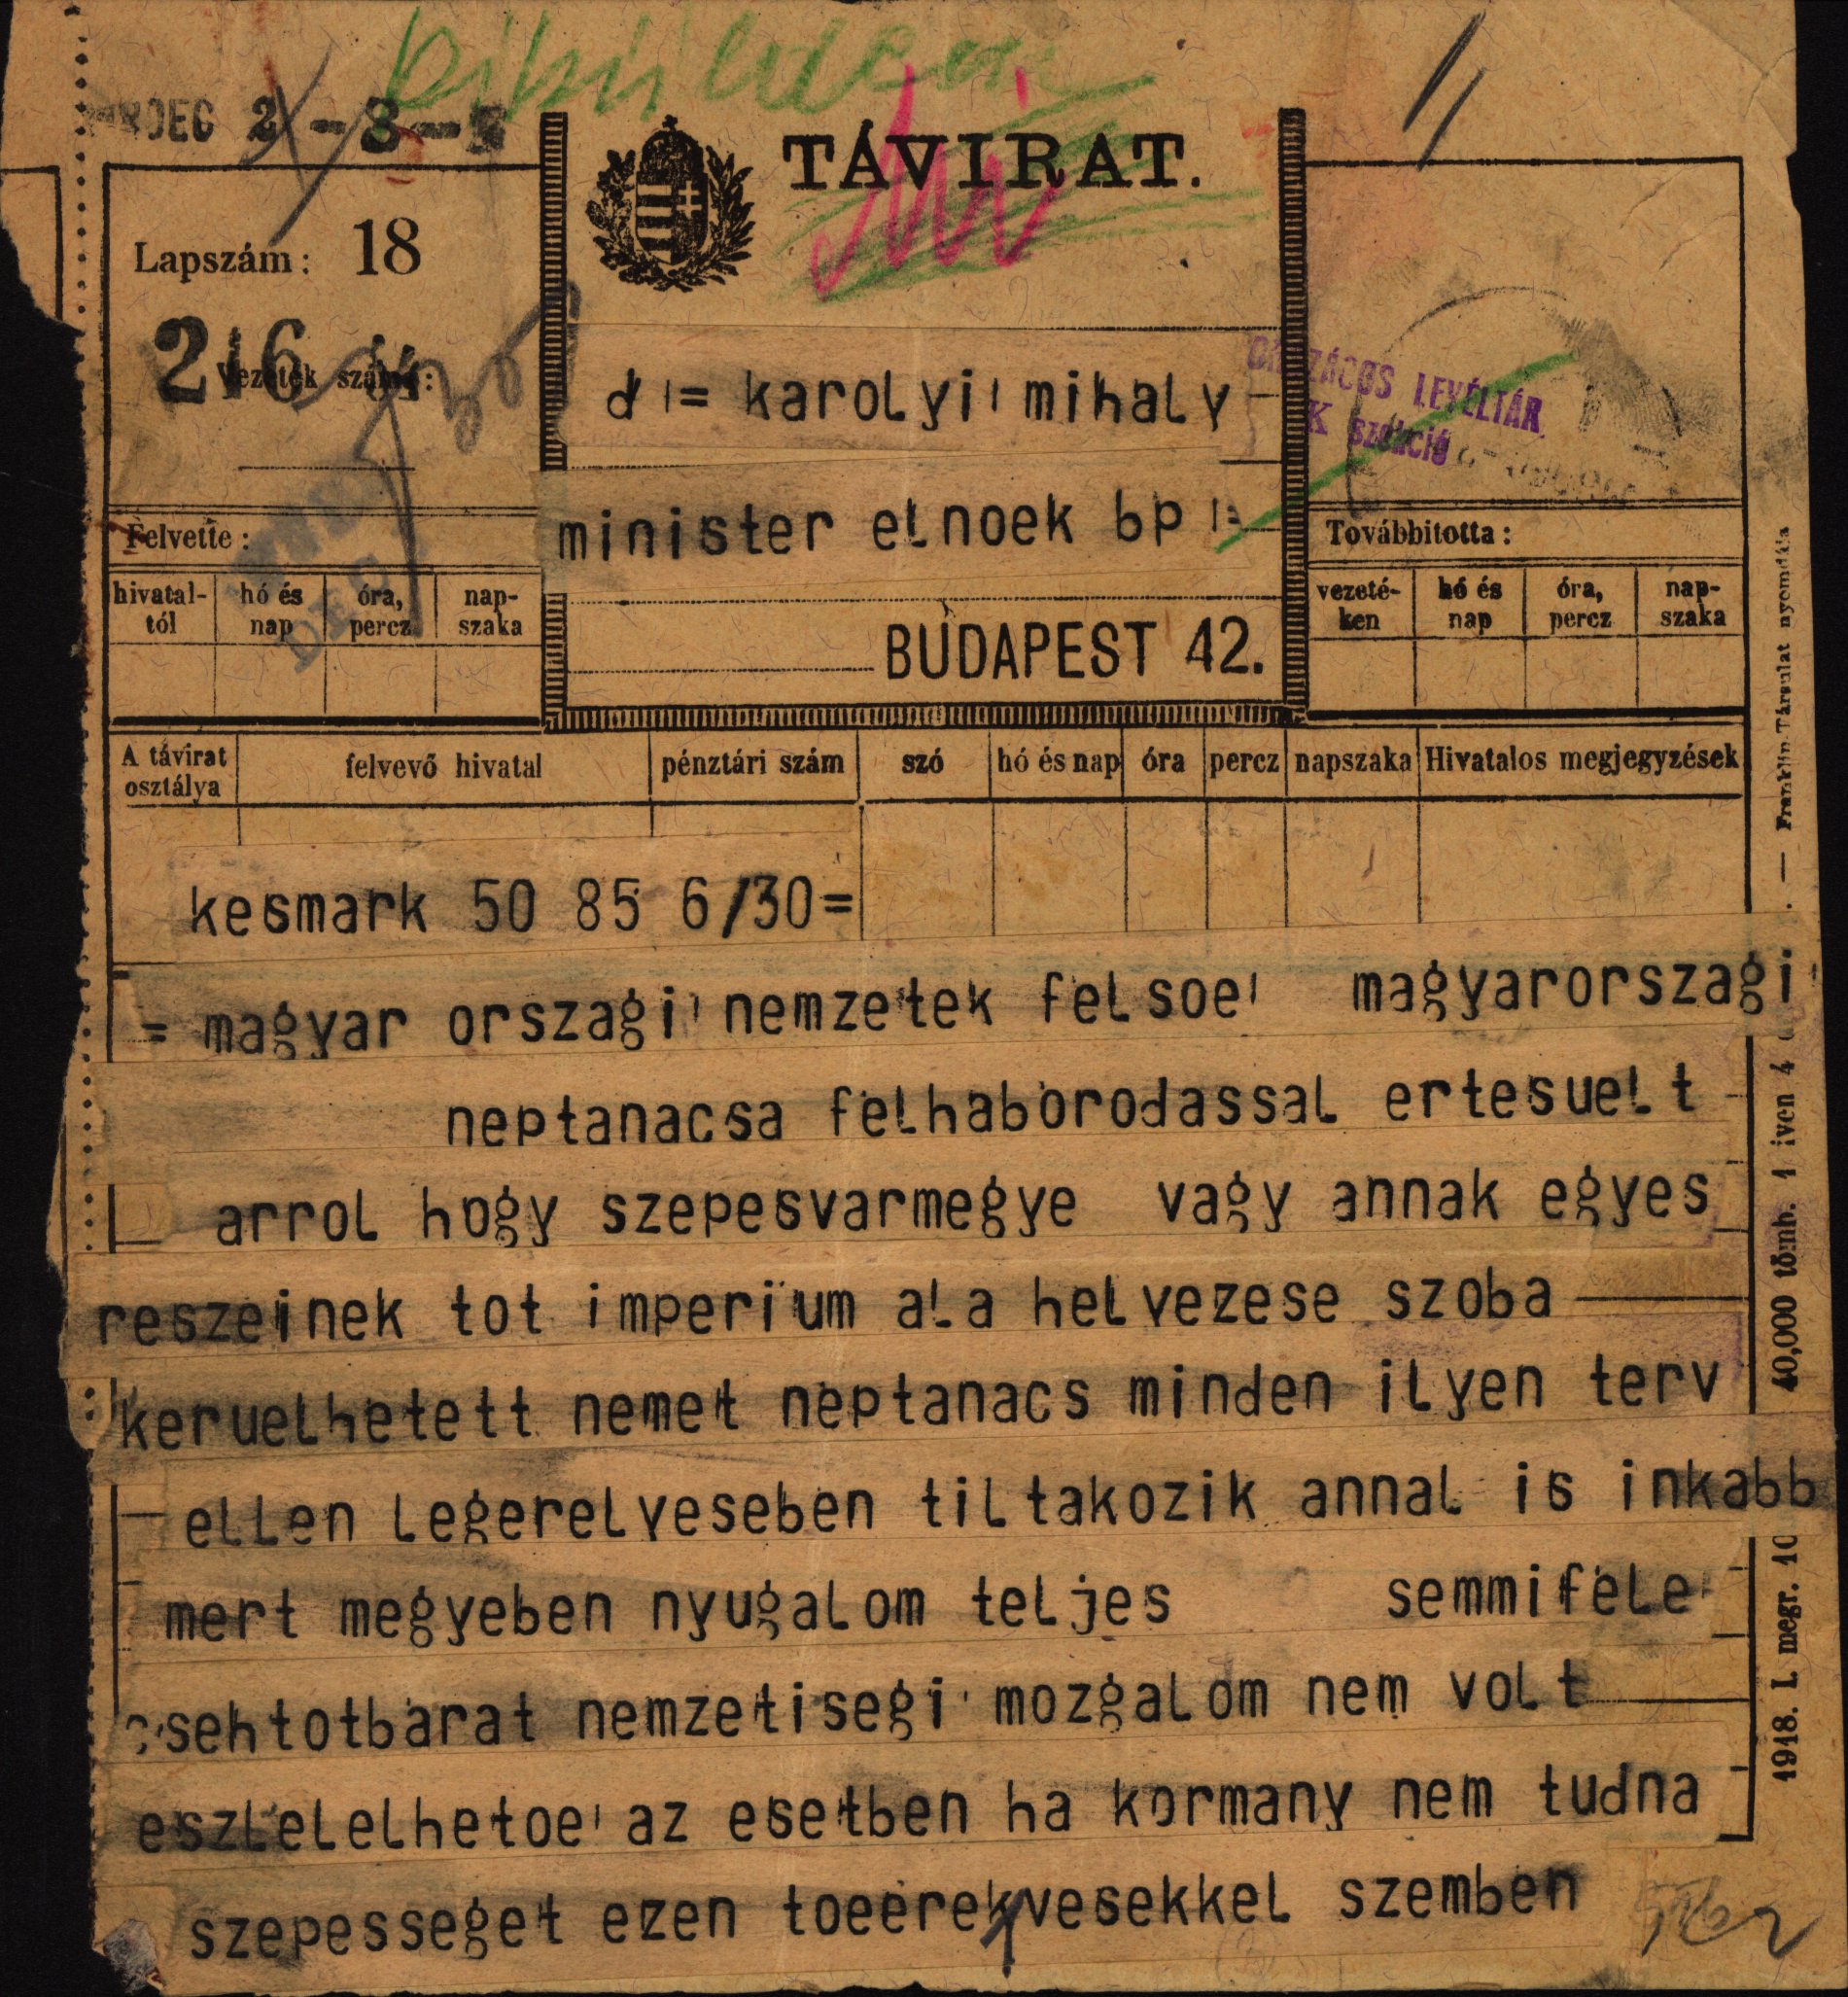 DEC 2 - 3 -
TÁVIRAT.
Lapszám: 18
216
Vezeték száma:
d = karolyi mihaly
minister elnoek bp =
BUDAPEST 42.
ORSZÁGOS LEVÉLTÁR
K szekció
Felvette:
hivatal-
tól
hó és
nap
óra,
percz
nap-
szaka
Továbbitotta:
vezeté-
ken
hó és
nap
óra,
percz
nap-
szaka
A távirat
osztálya
felvevő hivatal
pénztári szám
szó
hó és nap
óra
percz
napszaka
Hivatalos megjegyzések
kesmark 50 85 6/30=
= magyar orszagi nemzetek felsoe magyarorszagi
neptanacsa felhaborodassal ertesuelt
arrol hogy szepesvarmegye vagy annak egyes
reszeinek tot imperium ala helvezese szoba
keruelhetett nemet neptanacs minden ilyen terv
ellen legerelveseben tiltakozik annal is inkabb
mert megyeben nyugalom teljes semmifele
csehtotbarat nemzetisegi mozgalom nem volt
eszlelelhetoe az esetben ha kormany nem tudna
szepesseget ezen toeerekvesekkel szemben
1918. I. megr. 10 40,000 tömb. 1 iven 4 — Franklin-Társulat nyomdája